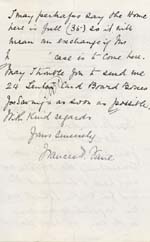 I may perhaps say the Home
here is full (36) so it will
mean an exchange if Mrs
case is to come here.
May I trouble you to send me
24 Card Board Boxes
for Savings as soon as possible.
With Kind regards
Yours sincerely
Frances